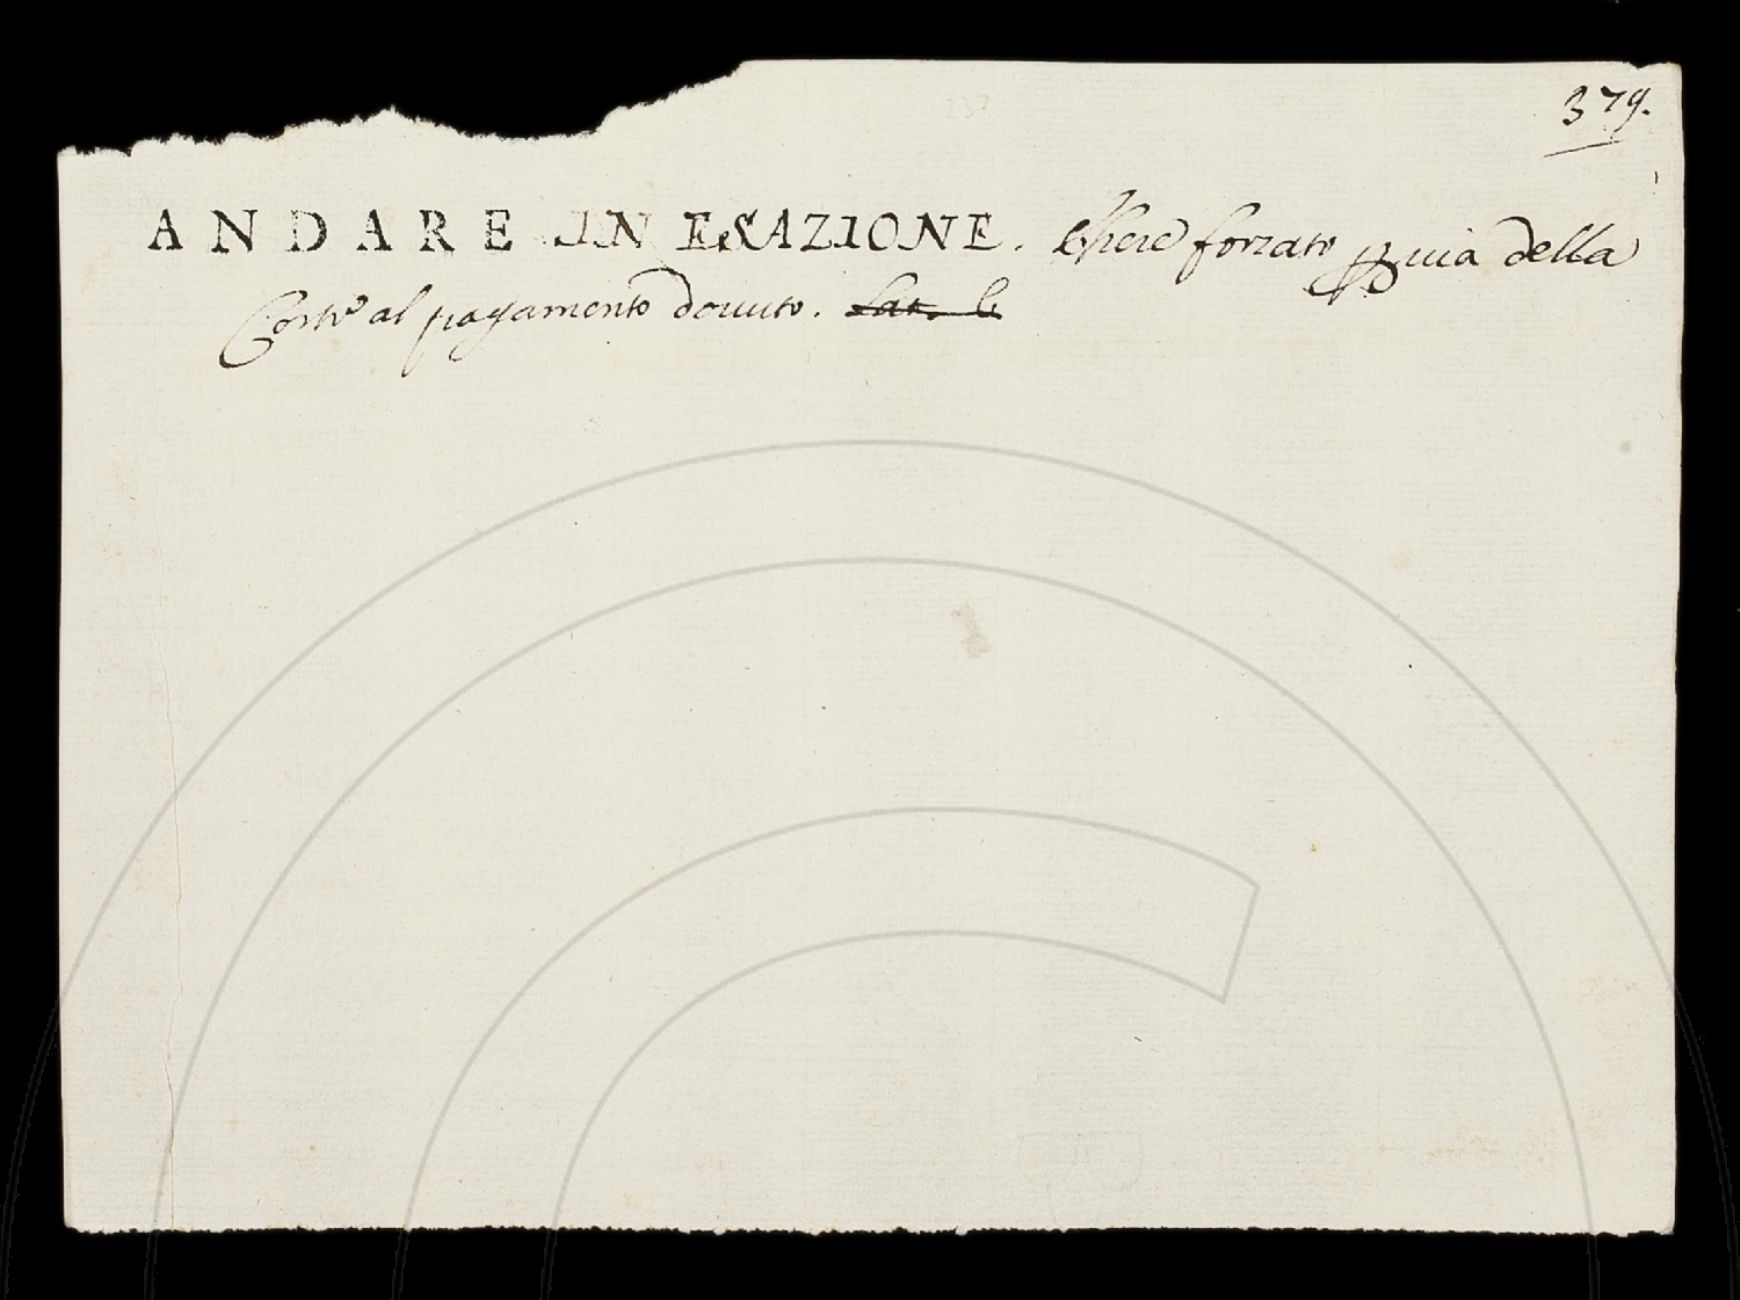 237
379.
ANDARE IN ESAZIONE. Essere forzato p via della
Corte al pagamento douuto. Lat. E